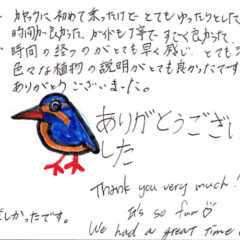 カヤック、初めて乗ったけど とてもゆったりとして
時間が良かった。ガイドも丁寧ですごく良かった。
時間の経つのがとても早く感じ、とても
色々な植物の説明がとても良かったです
ありがとうございました。
ありがとうござい
した
Thank you very much!
It's so fun
We had a great time
しかったです。